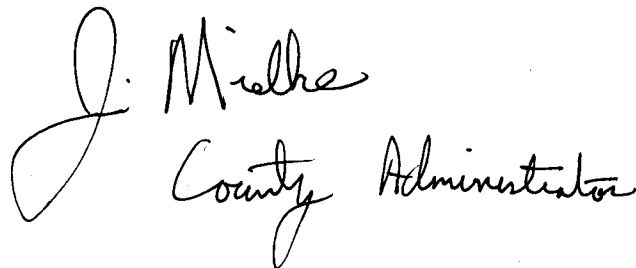 J. Mielke
County Administrator